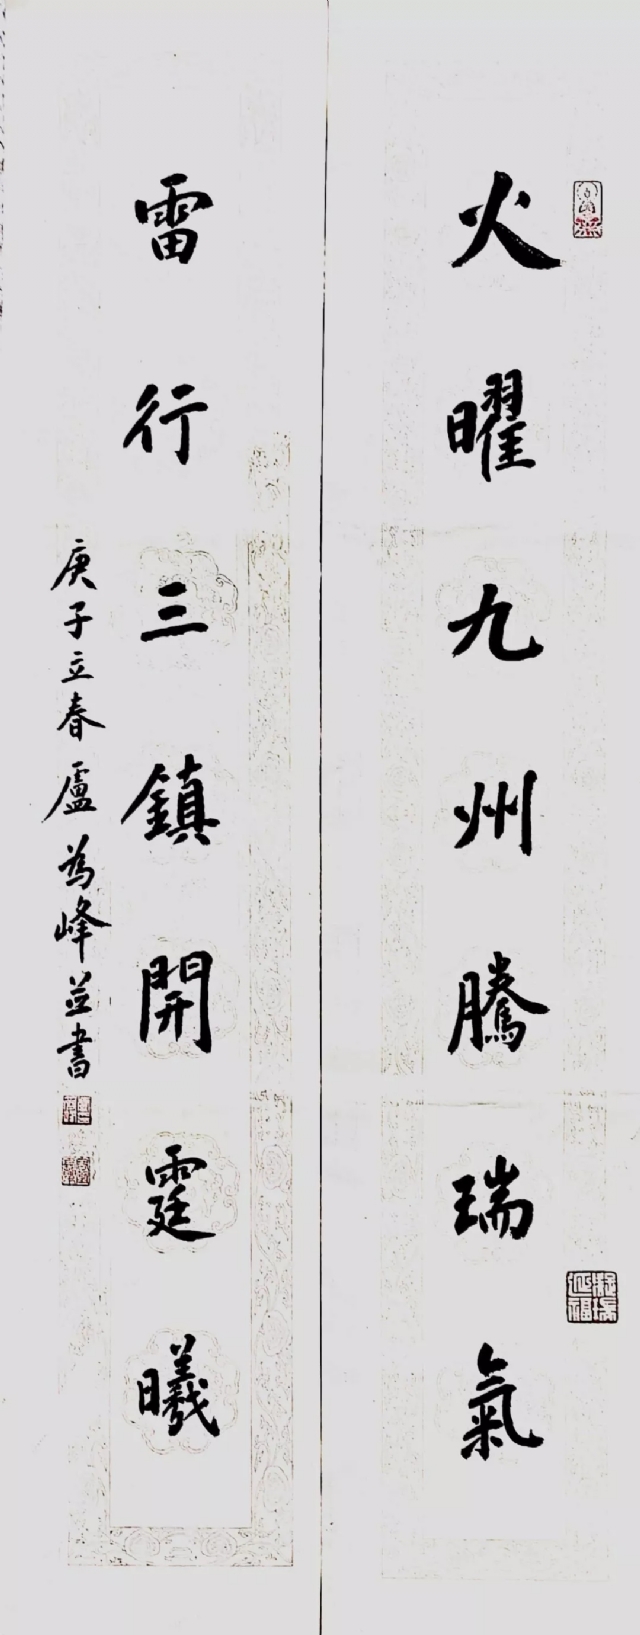 火曜九州騰瑞氣
雷行三鎮開霆曦
庚子立春盧為峰並書
凝瑞延福